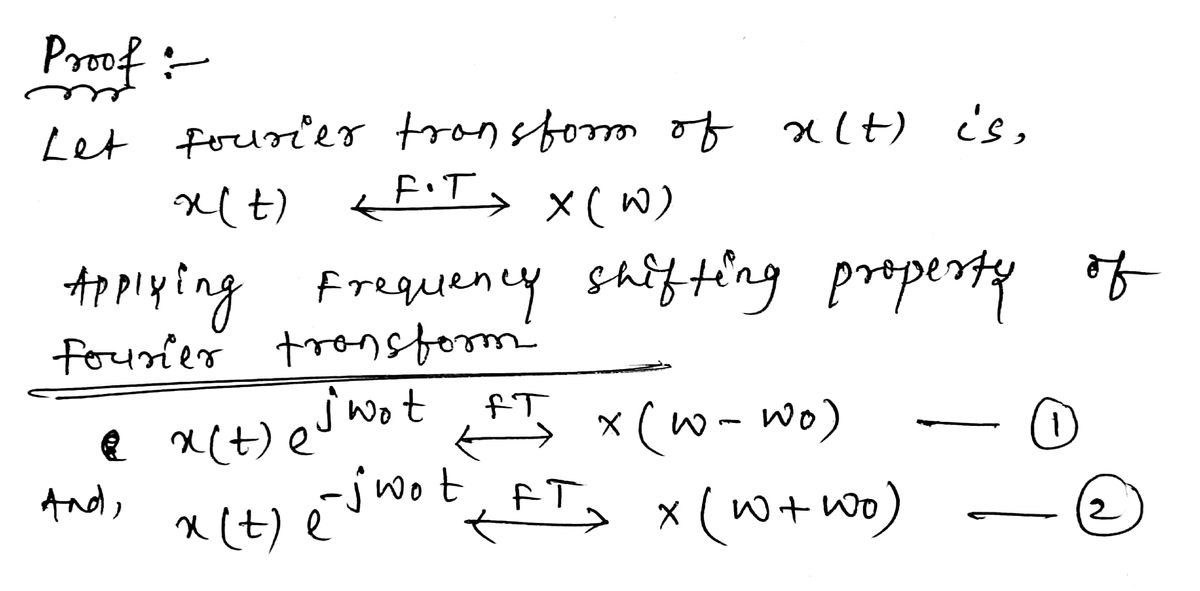 Proof :-
Let Fourier transform of x(t) is,
x(t) <--F.T--> X(w)
Applying Frequency shifting property of
Fourier transform
x(t) e^{jw₀t} <--FT--> X(w-w₀) — ①
And, x(t) e^{-jw₀t} <--FT--> X(w+w₀) — ②